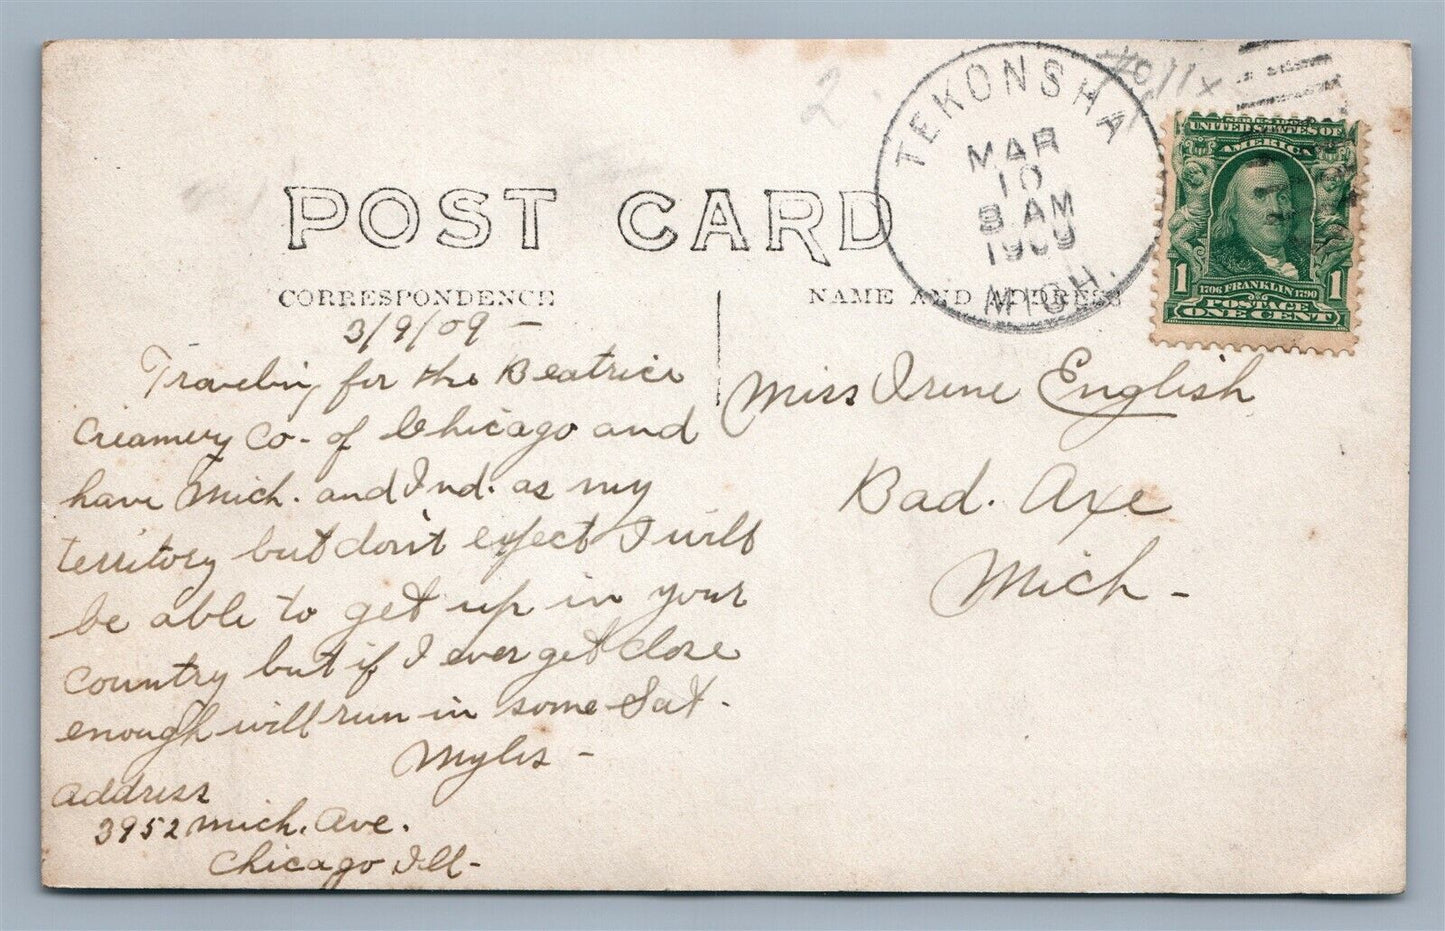 2.
TEKONSHA
MAR
10
8 AM
1909
MICH.
UNITED STATES OF
AMERICA
1706 FRANKLIN 1790
1 POSTAGE 1
ONE CENT
POST CARD
CORRESPONDENCE
NAME AND ADDRESS
3/9/09 -
Traveling for the Beatrice
Creamery Co- of Chicago and
have Mich. and Ind. as my
territory but don't expect I will
be able to get up in your
country but if I ever get close
enough will run in some Sat.
Myles -
Address
3952 Mich. Ave.
Chicago Ill-
Miss Irene English
Bad. Axe
Mich -